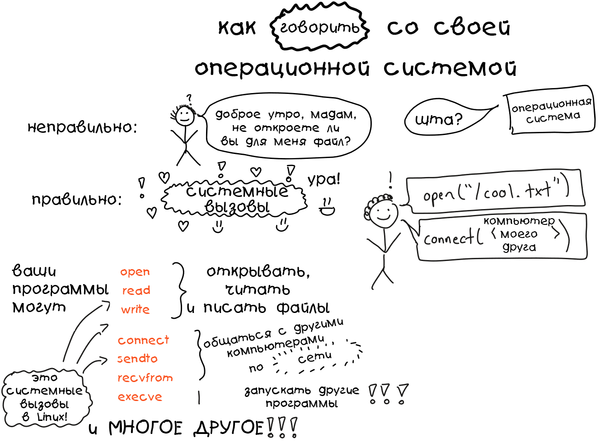 как говорить со своей
операционной системой
неправильно:
?
доброе утро, мадам,
не откроете ли
вы для меня файл?
шта?
операционная
система
правильно:
системные
вызовы
ура!
!
open("/cool.txt")
connect( <компьютер
моего
друга> )
ваши
программы
могут
open
read
write
открывать,
читать
и писать файлы
connect
sendto
recvfrom
общаться с другими
компьютерами
по сети
execve
запускать другие
программы !!!
это
системные
вызовы
в Linux!
и МНОГОЕ ДРУГОЕ!!!